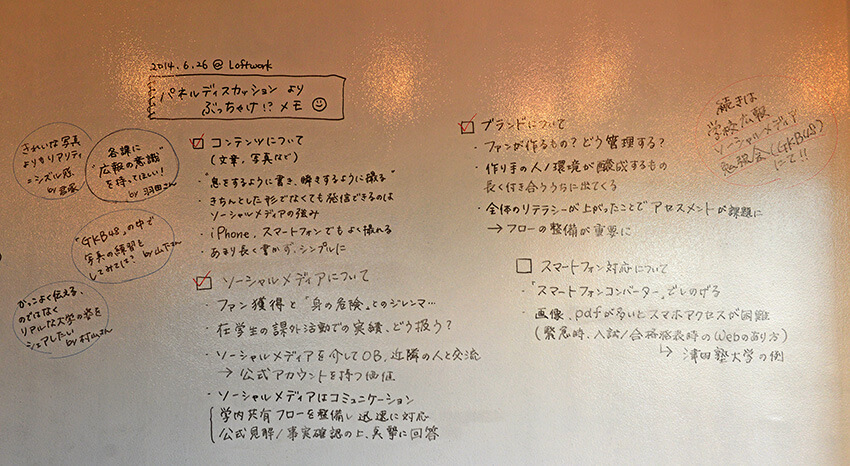 2014.6.26 @ Loftwork
パネルディスカッション より
ぶっちゃけ!? メモ
きれいな写真
よりもリアリティ
=シズル感
各課に
"広報の意識"
を持ってほしい!
by 羽田さん
"GKB48"の中で
写真の練習も
してみては? by 山下さん
かっこよく伝える、
のではなく
リアルな大学の姿を
シェアしたい
by 村山さん
コンテンツについて
(文章、写真など)
・"息をするように書き、瞬きするように撮る"
・きちんとした形でなくても発信できるのは
ソーシャルメディアの強み
・iPhone、スマートフォンでもよく撮れる
・あまり長く書かず、シンプルに
ソーシャルメディアについて
・ファン獲得と"身の危険"とのジレンマ…
・在学生の課外活動での実績、どう扱う?
・ソーシャルメディアを介してOB、近隣の人と交流
→ 公式アカウントを持つ価値
・ソーシャルメディアはコミュニケーション
学内共有フローを整備し迅速に対応
公式見解/事実確認の上、真摯に回答
ブランドについて
・ファンが作るもの?どう管理する?
・作り手の人/環境が醸成するもの
長く付き合ううちに出てくる
・全体のリテラシーが上がったことでアセスメントが課題に
→フローの整備が重要に
スマートフォン対応について
・"スマートフォンコンバーター"でしのげる
・画像、pdfが多いとスマホアクセスが困難
(緊急時、入試/合格発表時のWebのあり方)
↳ 津田塾大学の例
続きは
学校広報
ソーシャルメディア
勉強会(GKB48)
にて!!